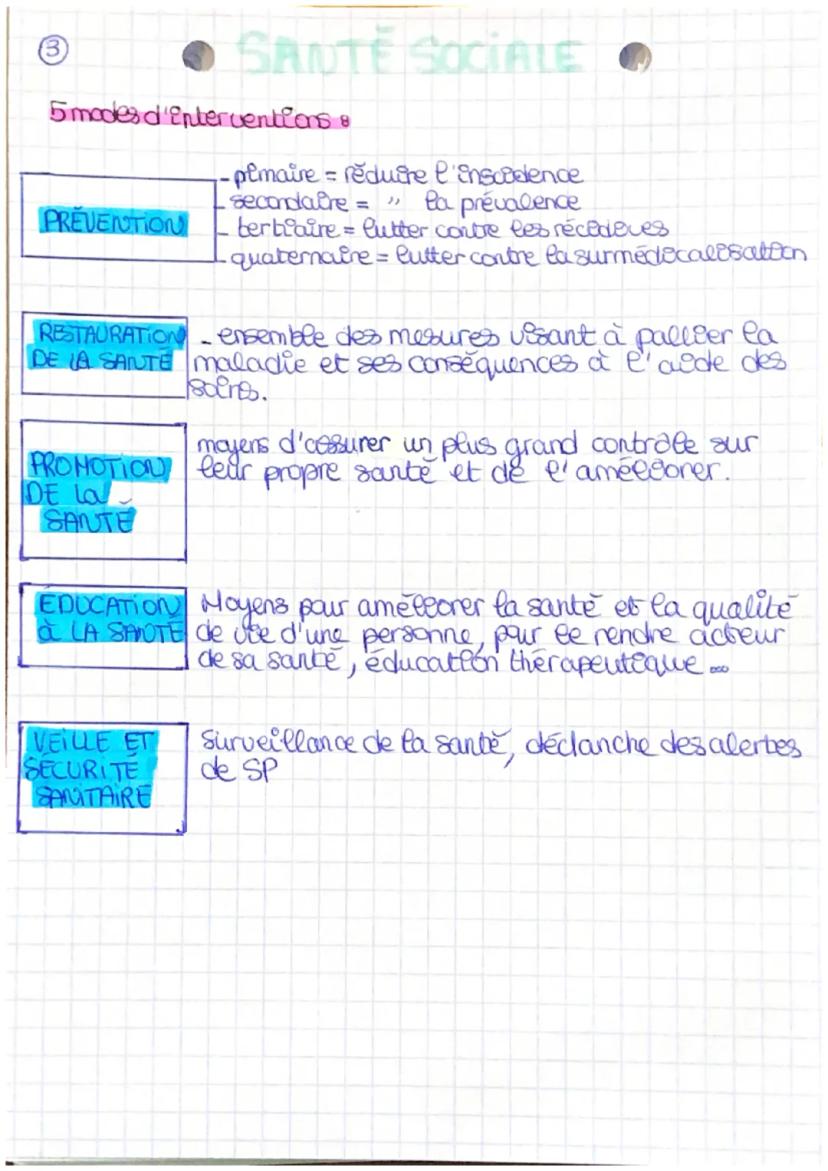 3
SANTÉ SOCIALE
5 modes d'interventions :
PRÉVENTION
- primaire = réduire l'inscidence
- secondaire = " la prévalence
- tertiaire = lutter contre les récidives
- quaternaire = lutter contre la surmédicalisation
RESTAURATION
DE LA SANTÉ
- ensemble des mesures visant à pallier la
maladie et ses conséquences à l'aide des
soins.
PROMOTION
DE la
SANTÉ
moyens d'assurer un plus grand contrôle sur
leur propre santé et de l'améliorer.
ÉDUCATION
à LA SANTÉ
Moyens pour améliorer la santé et la qualité
de vie d'une personne, pour le rendre acteur
de sa santé, éducation thérapeutique ...
VEILLE ET
SÉCURITÉ
SANITAIRE
surveillance de la santé, déclanche des alertes
de SP